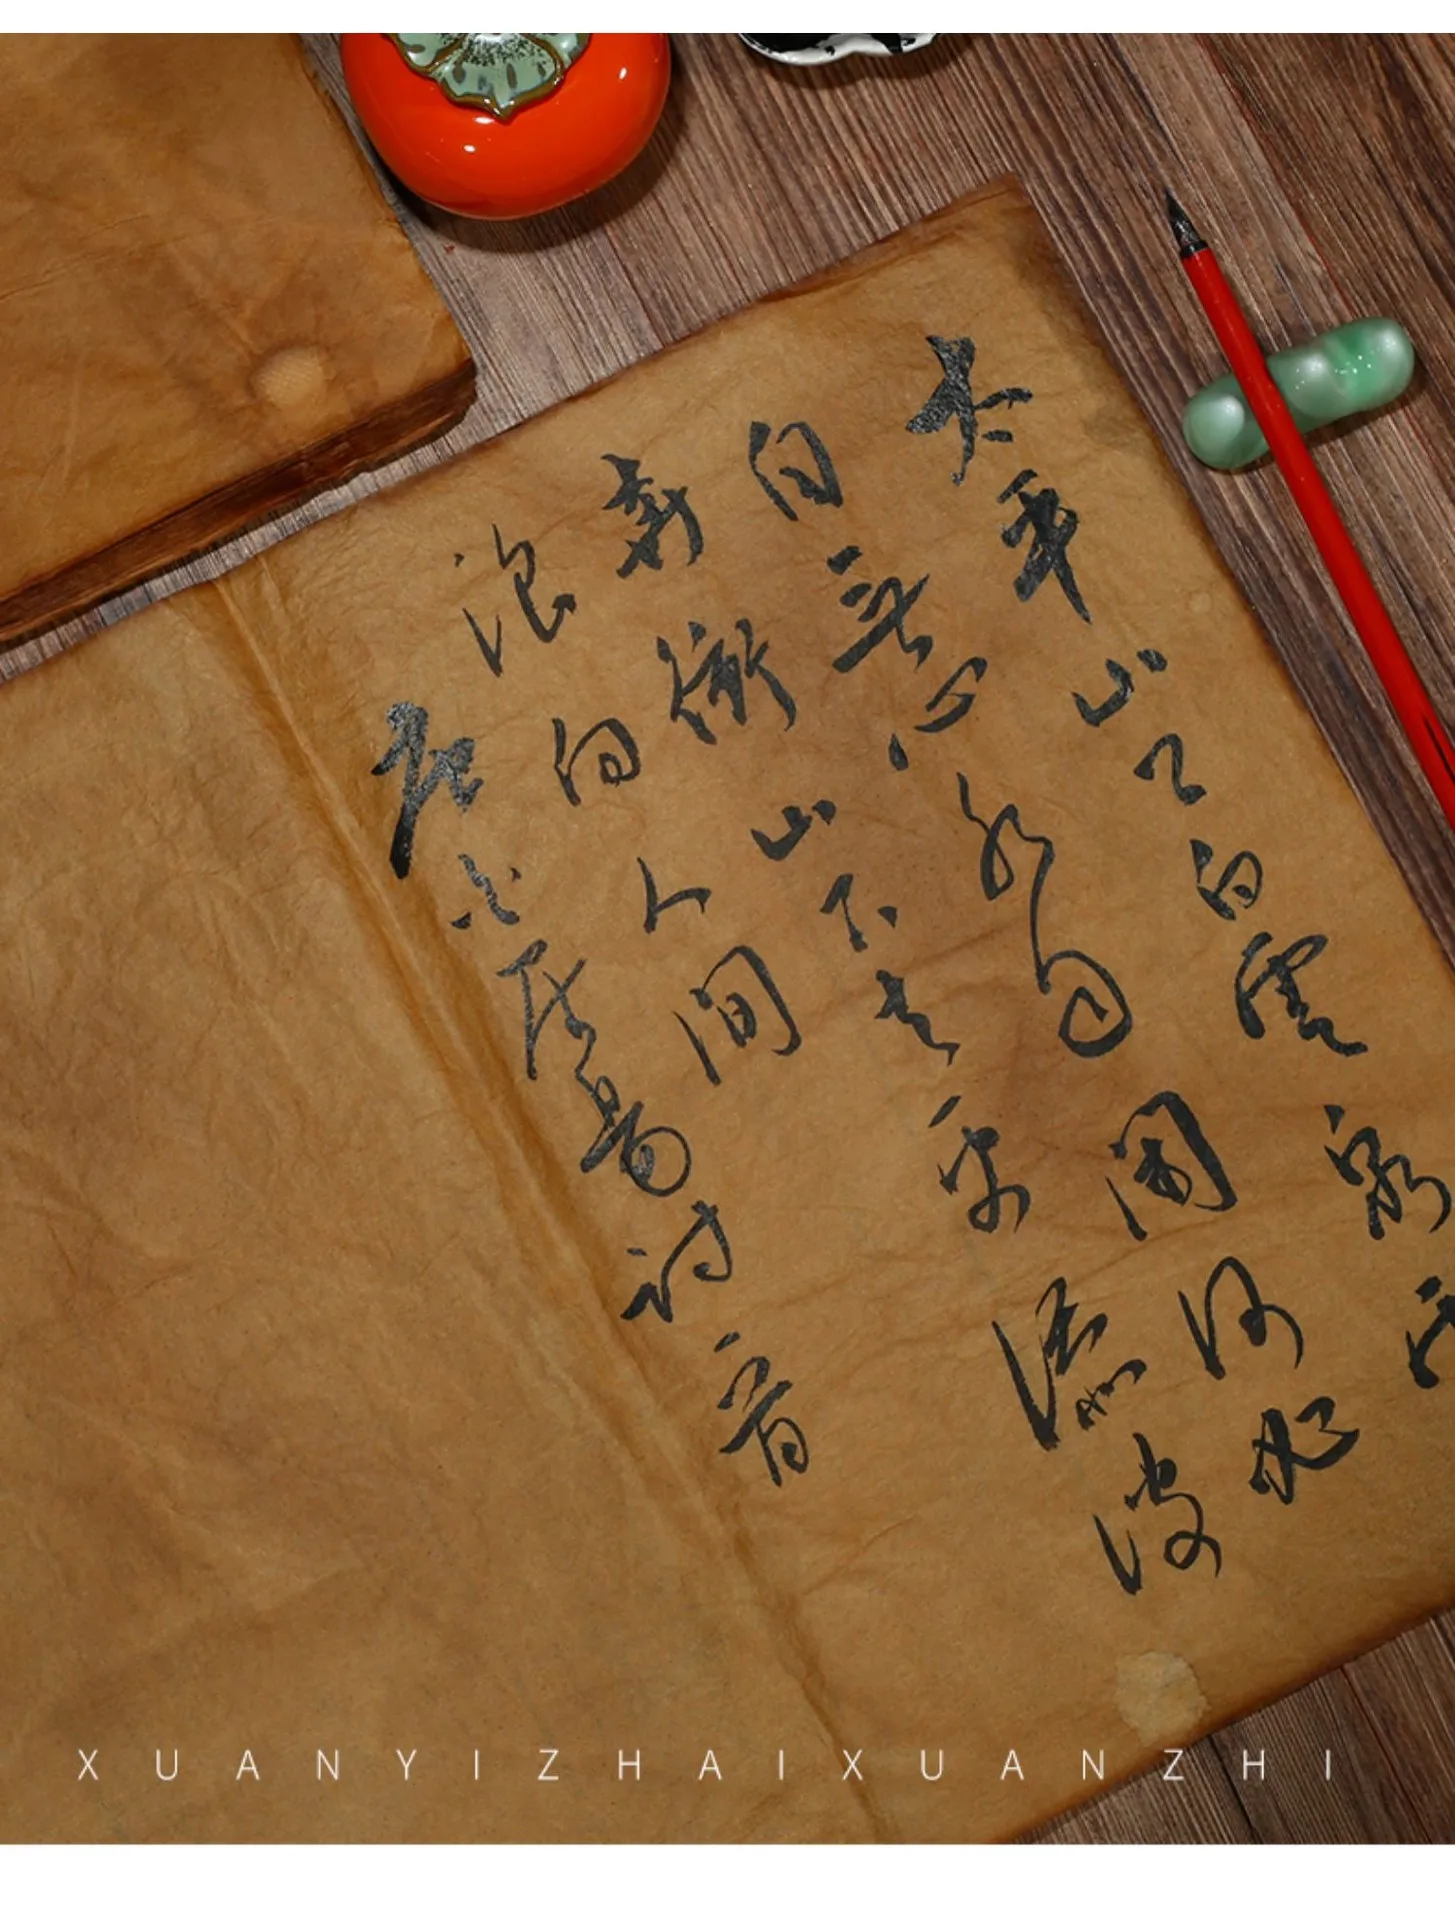 天平山上白雲泉雲
自無心水自閑何必
奔衝山下去更添波
浪向人間
唐白居易詩一首
XUANYIZHAIXUANZHI